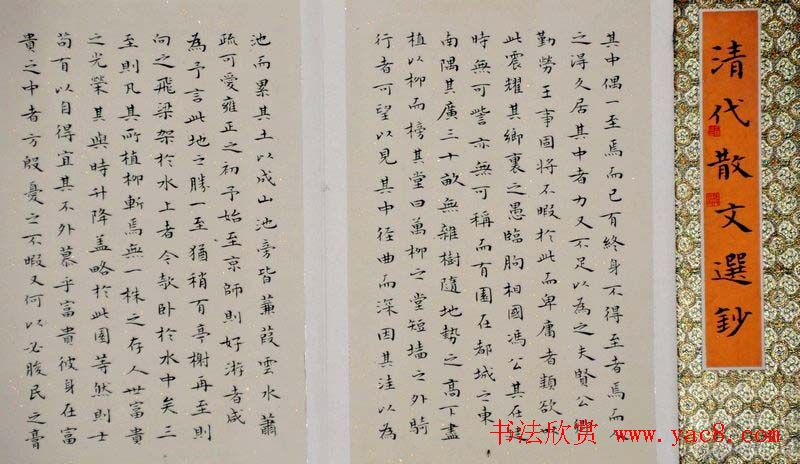 清代散文選鈔
其中偶一至焉而已有終身不得至者焉而人
之得久居其中者力又不足以為之夫賢公卿
勤勞王事固將不暇於此而卑庸者類欲以
此震耀其鄉裏之愚臨朐相國馮公其在廷
時無可訾亦無可稱而有園在都城之東
南隅其廣三十畝無雜樹隨地勢之高下盡
植以柳而榜其堂曰萬柳之堂短墻之外騎
行者可望以見其中徑曲而深因其洼以為
池而累其土以成山池旁皆蒹葭雲水蕭
疏可愛雍正之初予始至京師則好游者咸
為予言此地之勝一至猶稍有亭榭再至則
向之飛梁架於水上者今欹卧於水中矣三
至則凡其所植柳斬焉無一株之存人世富貴
之光榮其與時升降蓋略於此園等然則士
苟有以自得宜其不外慕乎富貴彼身在富
貴之中者方殷憂之不暇又何以必朘民之膏
书法欣赏 www.yac8.com